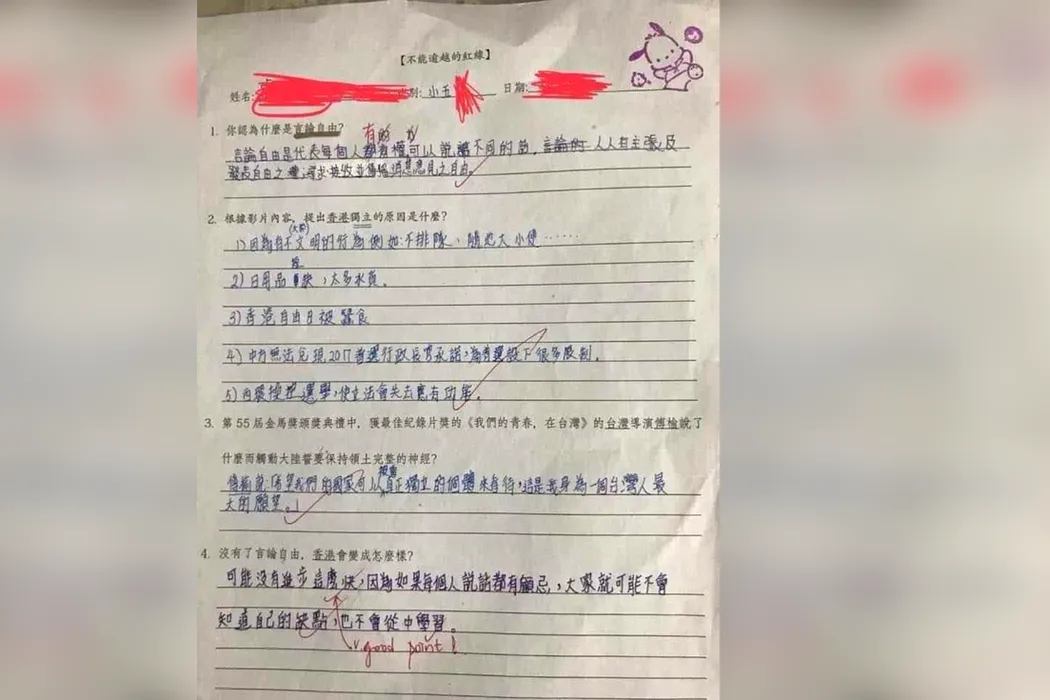 【不能逾越的紅線】
姓名: 別: 小五 日期:
1. 你認為什麼是言論自由?
有的 力
言論自由是代表每個人都有權可以說 不同的話，言論的 人人有主張及
發表自由之 尋求接收並傳播消息意見之自由。
2. 根據影片內容，提出香港獨立的原因是什麼?
(大陸)
1)因為有不文明的行為例如:不排隊、隨地大小便……
2)日用品 缺，太多水貨。
3)香港自由日被蠶食
4)中方無法兌現2017普選行政長官承諾，為普選設下很多限制。
5)西環操控選舉，使立法會失去應有功能。
3. 第55屆金馬獎頒獎典禮中，獲最佳紀錄片獎的《我們的青春，在台灣》的台灣導演傅榆說了
什麼而觸動大陸誓要保持領土完整的神經?
被當
傅榆說:「希望我們的國家可以真正獨立的個體來看待，這是我身為一個台灣人最
大的願望。」
4. 沒有了言論自由，香港會變成怎麼樣?
可能沒有進步這麼快，因為如果每個人說話都有顧忌，大家就可能不會
知道自己的缺點，也不會從中學習。
good point!